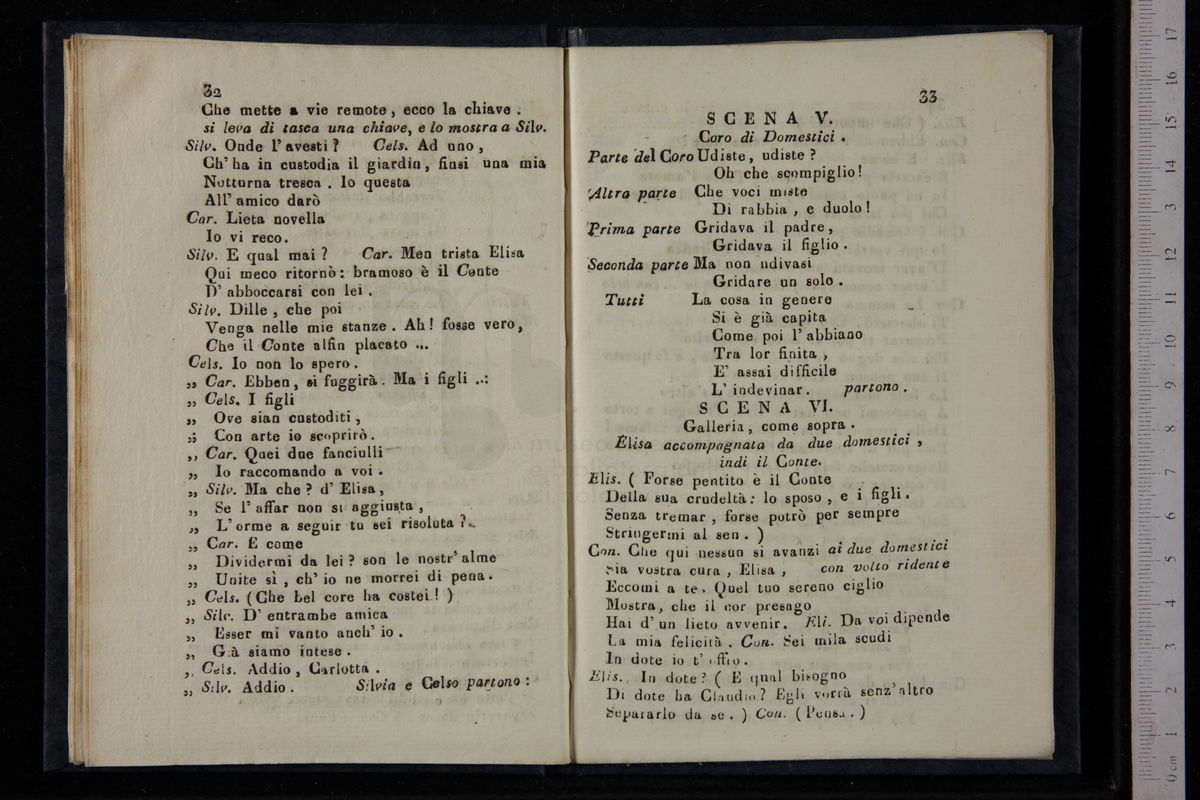 32
Che mette a vie remote, ecco la chiave .
si leva di tasca una chiave, e lo mostra a Silv.
Silv. Onde l'avesti ? Cels. Ad uno ,
Ch' ha in custodia il giardin , finsi una mia
Notturna tresca . Io questa
All' amico darò
Car. Lieta novella
Io vi reco.
Silv. E qual mai ? Car. Men trista Elisa
Qui meco ritornò : bramoso è il Conte
D' abboccarsi con lei .
Silv. Dille , che poi
Venga nelle mie stanze . Ah! fosse vero,
Che il Conte alfin placato ...
Cels. Io non lo spero .
,, Car. Ebben, si fuggirà. Ma i figli ..:
,, Cels. I figli
,, Ove sian custoditi ,
,; Con arte io scoprirò .
,, Car. Quei due fanciulli
,, Io raccomando a voi .
,, Silv. Ma che ? d' Elisa ,
,, Se l' affar non si aggiusta ,
,, L' orme a seguir tu sei risoluta ?
,, Car. E come
,, Dividermi da lei ? son le nostr' alme
,, Unite sì , ch' io ne morrei di pena.
,, Cels. (Che bel core ha costei ! )
,, Silv. D' entrambe amica
,, Esser mi vanto anch' io .
,, Già siamo intese .
,, Cels. Addio , Carlotta .
,, Silv. Addio . Silvia e Celso partono :
33
SCENA V.
Coro di Domestici .
Parte del Coro Udiste , udiste ?
Oh che scompiglio!
Altra parte Che voci miste
Di rabbia , e duolo !
Prima parte Gridava il padre,
Gridava il figlio .
Seconda parte Ma non udivasi
Gridare un solo .
Tutti La cosa in genere
Si è già capita
Come poi l' abbiano
Tra lor finita ,
E' assai difficile
L' indevinar. partono .
SCENA VI.
Galleria, come sopra .
Elisa accompagnata da due domestici ,
indi il Conte.
Elis. ( Forse pentito è il Conte
Della sua crudeltà : lo sposo , e i figli .
Senza tremar , forse potrò per sempre
Stringermi al sen . )
Con. Che qui nessun si avanzi ai due domestici
Sia vostra cura , Elisa , con volto ridente
Eccomi a te. Quel tuo sereno ciglio
Mostra, che il cor presago
Hai d' un lieto avvenir. Eli. Da voi dipende
La mia felicità . Con. Sei mila scudi
In dote io t' offro.
Elis. In dote ? ( E qual bisogno
Di dote ha Claudio ? Egli vorrà senz' altro
Separarlo da se . ) Con. ( Pensa . )